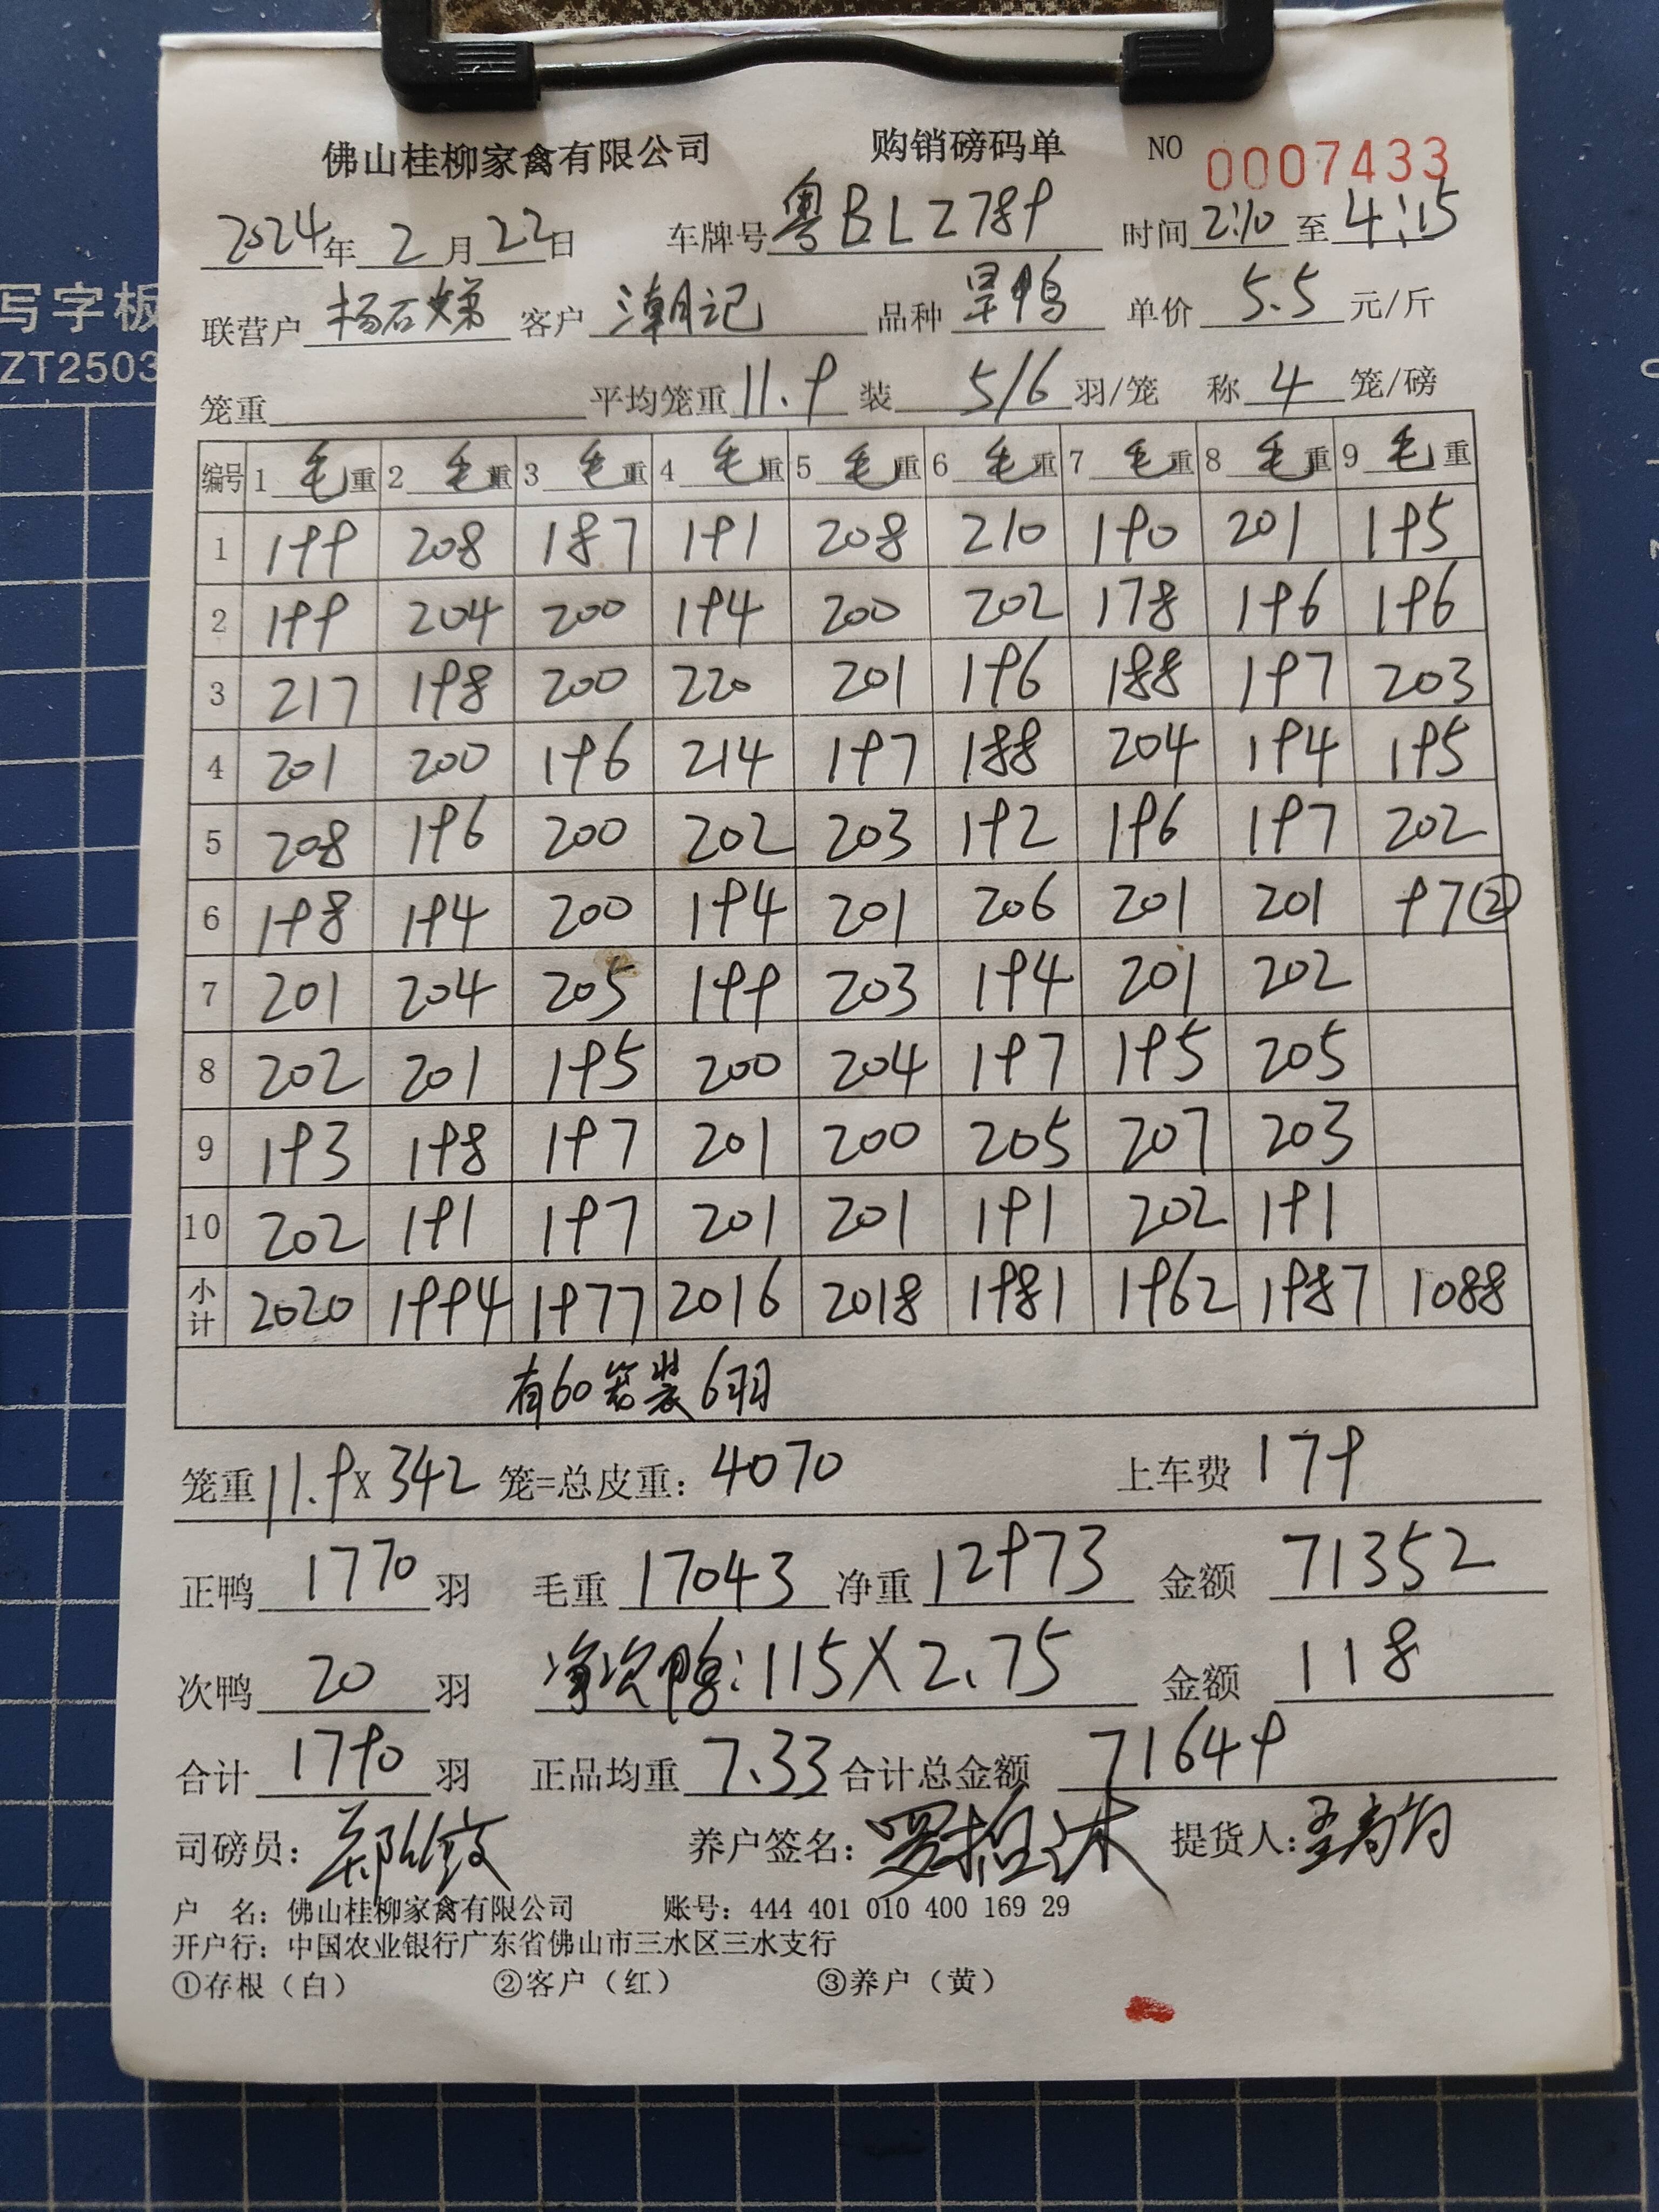 佛山桂柳家禽有限公司 购销磅码单 NO 0007433
2024年 2月22日 车牌号 粤BLZ789 时间 2:10 至 4:15
联营户 杨石娣 客户 潮记 品种 旱鸭 单价 5.5 元/斤
笼重 平均笼重 11.9 装 5/6 羽/笼 称 4 笼/磅
编号 1 毛重 2 毛重 3 毛重 4 毛重 5 毛重 6 毛重 7 毛重 8 毛重 9 毛重
1 199 208 187 191 208 210 190 201 195
2 199 204 200 194 200 202 178 196 196
3 217 198 200 220 201 196 188 197 203
4 201 200 196 214 197 188 204 194 195
5 208 196 200 202 203 192 196 197 202
6 198 194 200 194 201 206 201 201 97②
7 201 204 205 199 203 194 201 202
8 202 201 195 200 204 197 195 205
9 193 198 197 201 200 205 207 203
10 202 191 197 201 201 191 202 191
小计 2020 1994 1977 2016 2018 1981 1962 1987 1088
有60笼装6羽
笼重 11.9 x 342 笼=总皮重: 4070 上车费 179
正鸭 1770 羽 毛重 17043 净重 12973 金额 71352
次鸭 20 羽 净次鸭:115X2.75 金额 118
合计 1790 羽 正品均重 7.33 合计总金额 71649
司磅员: 养户签名: 提货人:
户 名: 佛山桂柳家禽有限公司 账号: 444 401 010 400 169 29
开户行: 中国农业银行广东省佛山市三水区三水支行
①存根（白） ②客户（红） ③养户（黄）
写字板
ZT2503